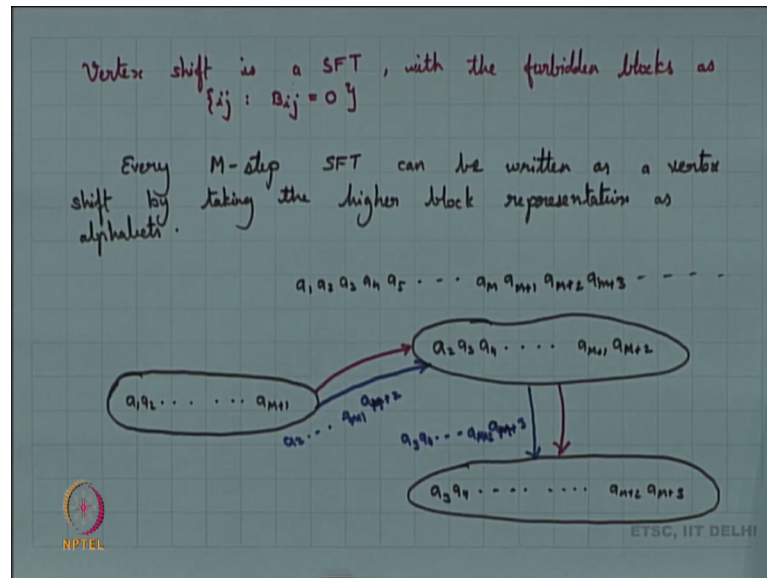 Vertex shift is a SFT, with the forbidden blocks as
{ij : Bij = 0}
Every M-step SFT can be written as a vertex
shift by taking the higher block representation as
alphabets.
a1 a2 a3 a4 a5 · · · aM aM+1 aM+2 aM+3 - - - -
a2 a3 a4 · · · · aM+1 aM+2
a1 a2 · · · · · · aM+1
a2 · · · aM+1 aM+2
a3 a4 - - - aM+2 aM+3
a3 a4 · · · · · · · · aM+2 aM+3
NPTEL
ETSC, IIT DELHI